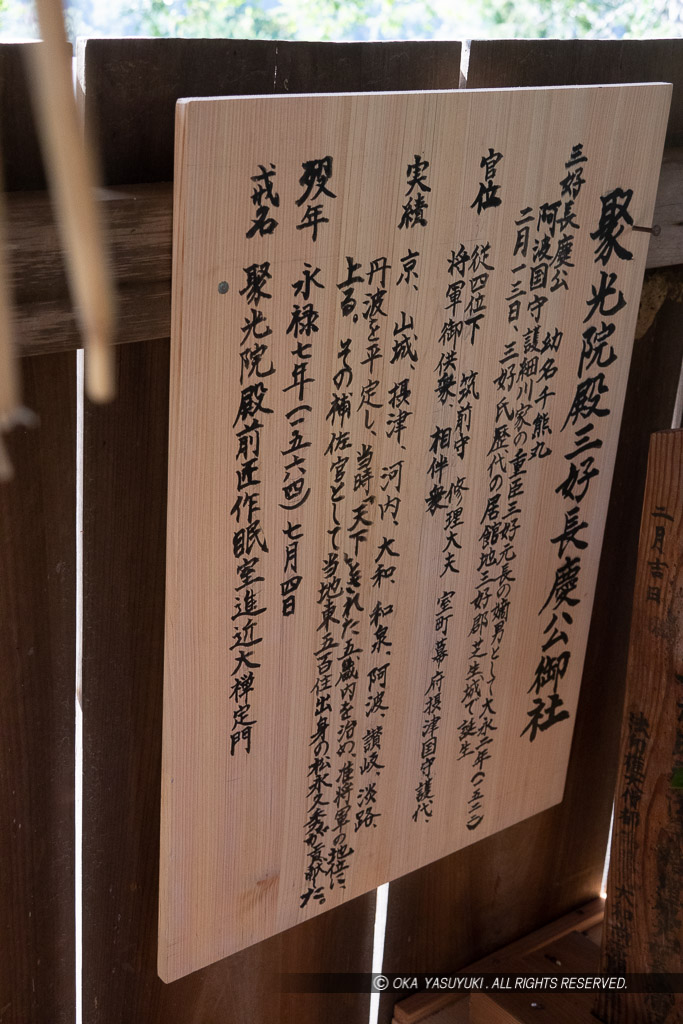 聚光院殿三好長慶公御社
三好長慶公　幼名千熊丸
阿波国守護細川家の重臣三好元長の嫡男として大永二年(一五二二)
二月一三日、三好氏歴代の居館地三好郡芝生城で誕生
官位　従四位下　筑前守　修理大夫　室町幕府摂津国守護代、
将軍御供衆、相伴衆
実績　京、山城、摂津、河内、大和、和泉、阿波、讃岐、淡路、
丹波を平定し、当時「天下」とされた五畿内を治め、准将軍の地位に
上る。その補佐官として当地東五百住出身の松永久秀が貢献した。
歿年　永禄七年(一五六四)七月四日
戒名　聚光院殿前匠作眠室進近大禅定門
二月吉日
© OKA YASUYUKI. ALL RIGHTS RESERVED.